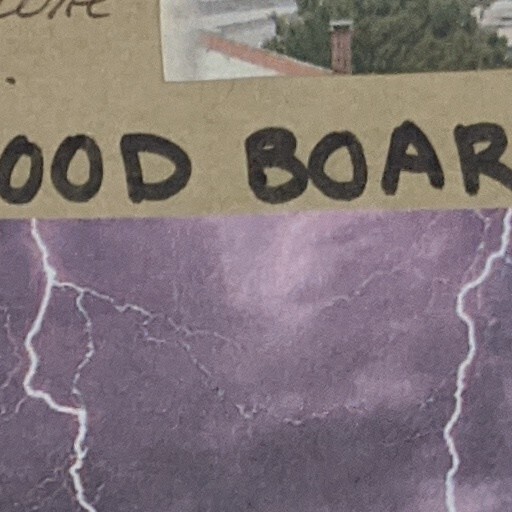 OOD BOAR